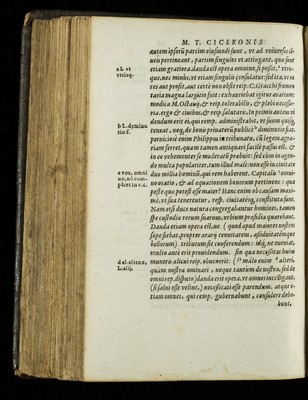 M. T. CICERONIS
autem ipsorũ partim eiusmodi sunt, vt ad vniuersos ci-
ues pertineant, partim singulos vt attingant, quæ sunt
etiam gratiora. danda est opera omnino, si possit, vtris-
que, nec minùs, vt etiam singulis consulatur: sed ita, vt ea
res aut prosit, aut certè non obsit reip. C. Gracchi frumen
taria magna largitio fuit: exhauriebat igitur ærarium:
modica M. Octauij, & reip. tolerabilis, & plebi necessa-
ria. ergo & ciuibus, & reip. salutaris. In primis autem vi
dendum erit ei, qui remp. administrabit, vt suum quisq;
teneat, neq; de bonis priuatorũ publicè diminutio fiat.
perniciosè enim Philippus in tribunatu, cũ legem agra-
riam ferret. quam tamen antiquari facilè passus est, &
in eo vehementer se moderatũ præbuit: sed cùm in agen-
do multa populariter, tum illud malè: non esse in ciuitate
duo millia hominũ, qui rem haberent. Capitalis omni-
no oratio, & ad æquationem bonorum pertinens: qua
peste quæ potest esse maior? Hanc enim ob causam maxi-
mè, vt sua tenerentur, resp. ciuitatesq; constitutæ sunt.
Nam etsi duce natura congregabantur homines, tamen
spe custodiæ rerum suarum, vrbium præsidia quærebant.
Danda etiam opera est, ne (quod apud maiores nostros
sæpe fiebat, propter ærarij tenuitatem, assiduitatemque
bellorum) tributum sit conferendum: idq; ne eueniat,
multo antè erit prouidendum. sin qua necessitas huius
muneris alicui reip. obuenerit: (malo enim alteri,
quàm nostræ ominari, neque tantùm de nostra, sed de
omni rep. disputo) danda erit opera, vt omnes intelligant,
(si salui esse velint,) necessitati esse parendum. atque e-
tiam omnes, qui remp. gubernabunt, consulere debe-
bunt,